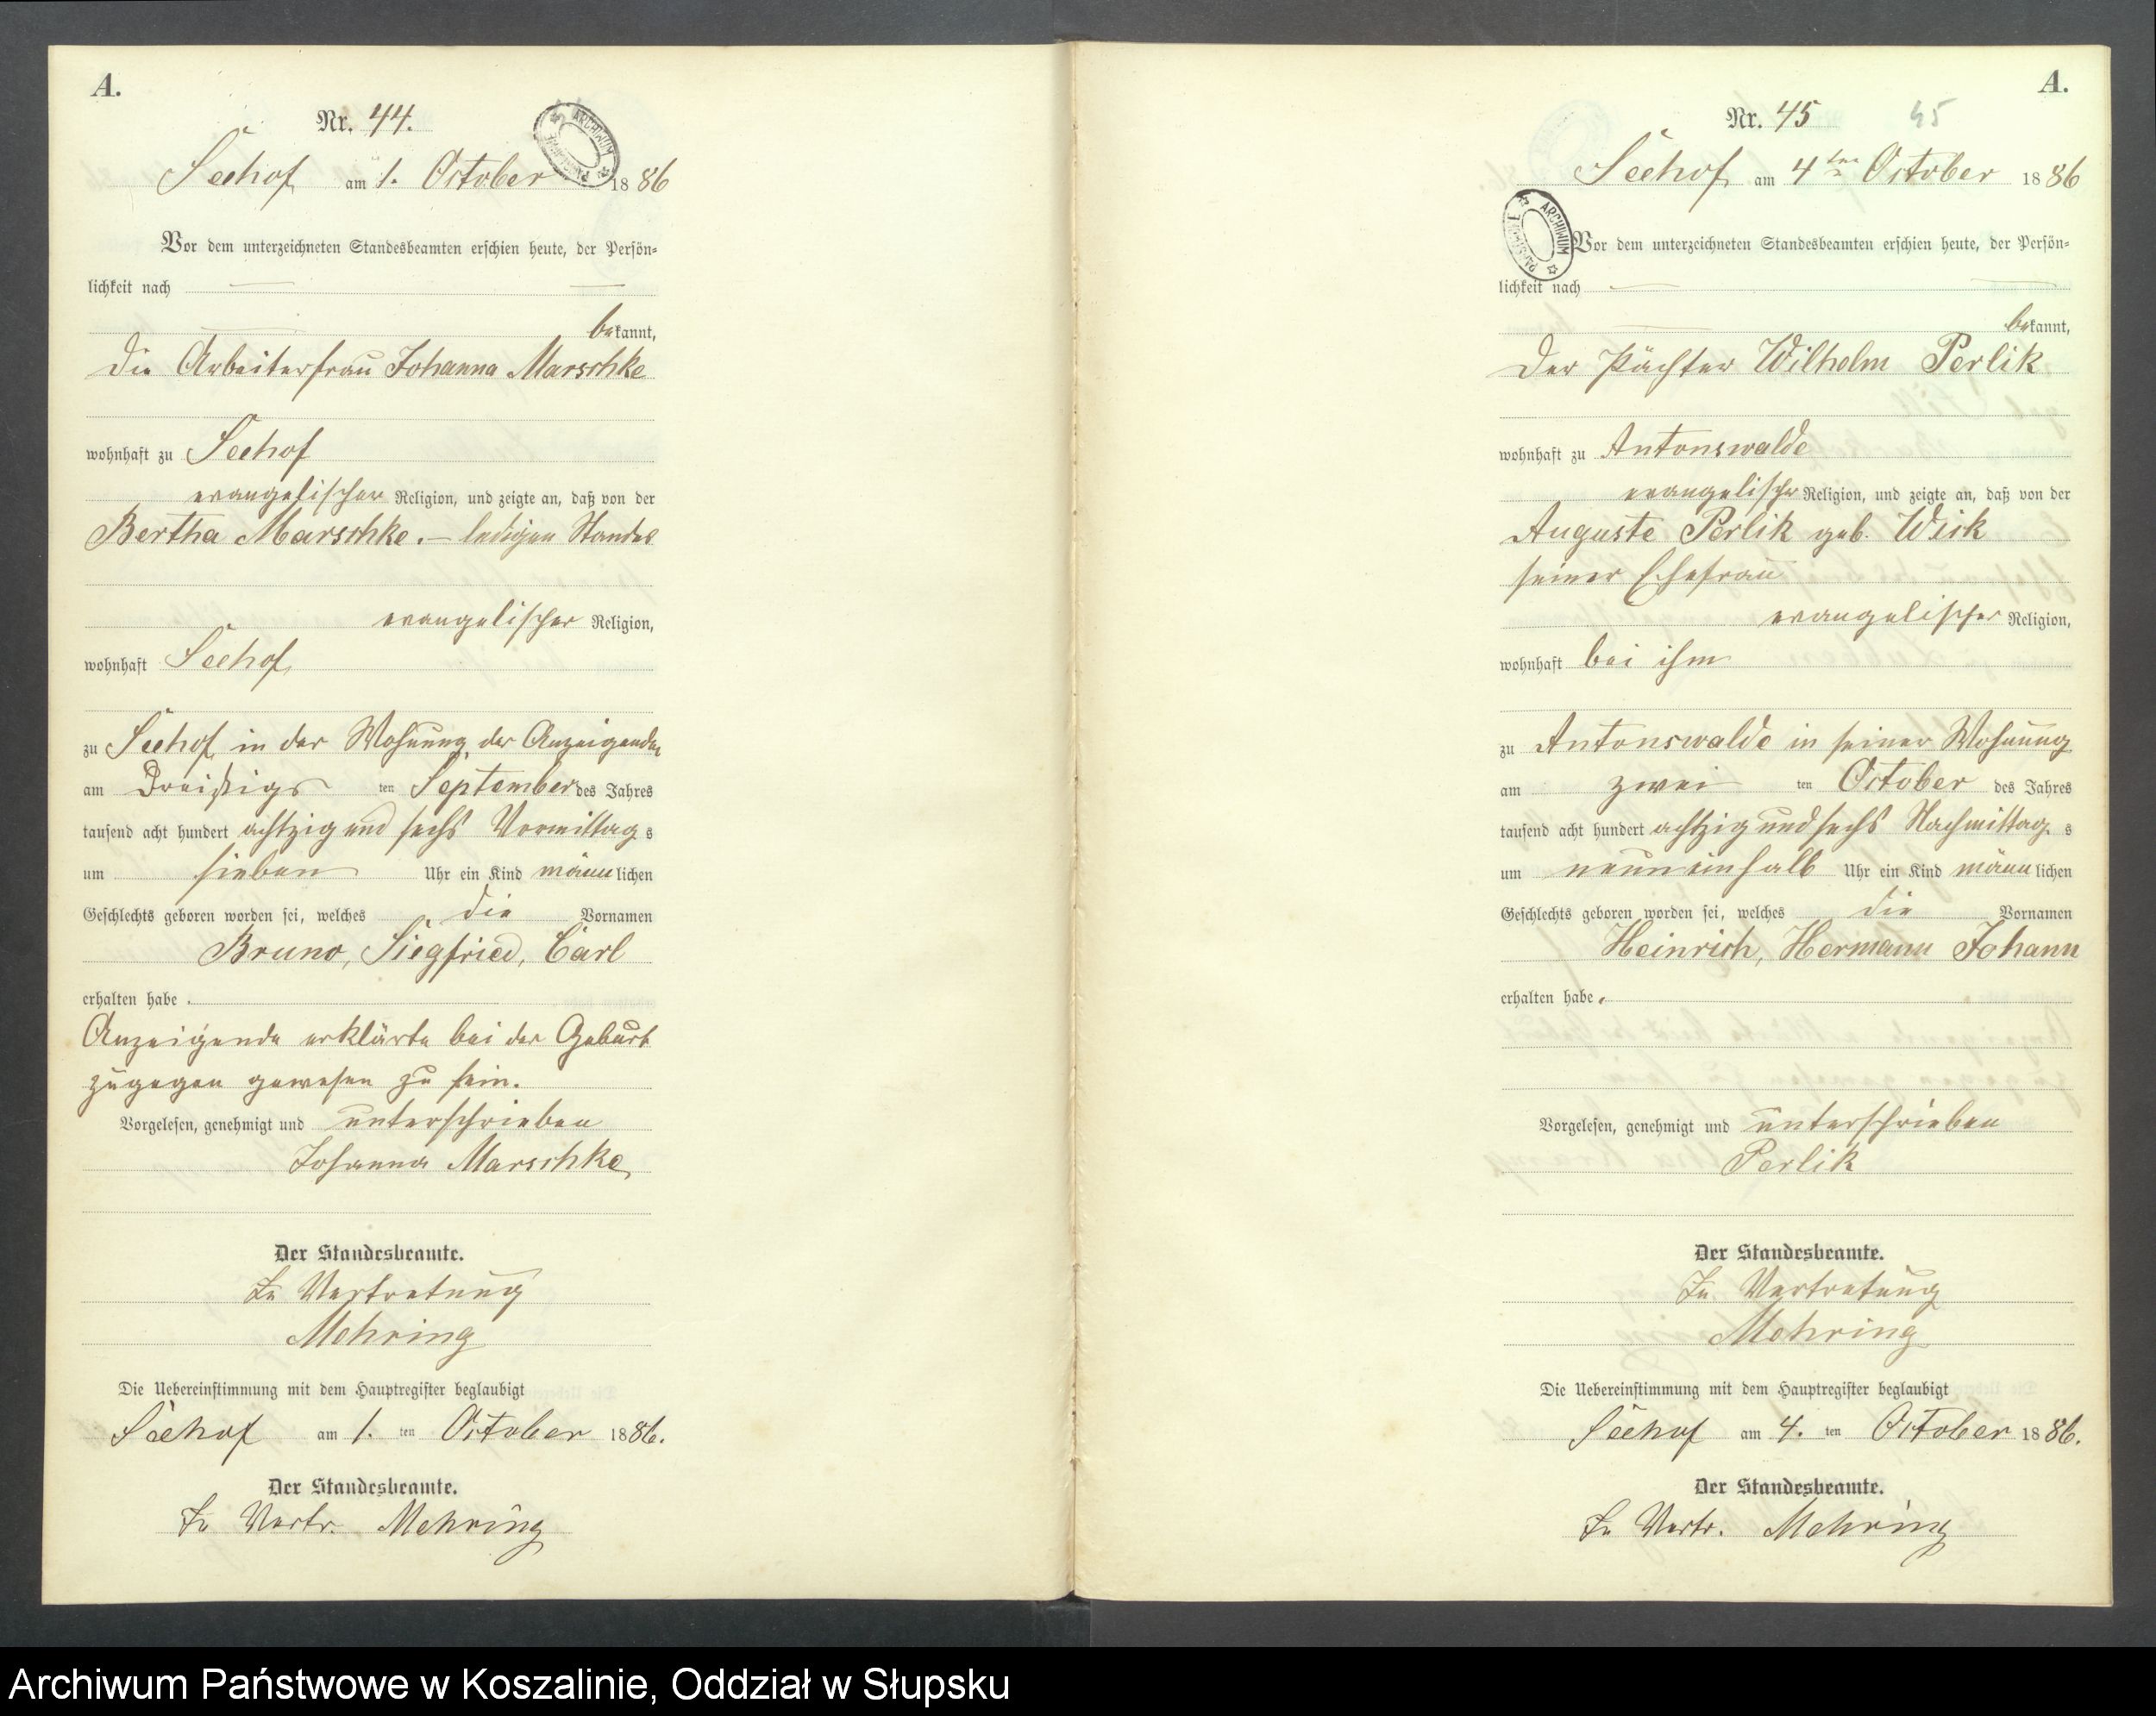 A.
Nr. 44.
ARCHIWUM PAŃSTWOWE
Seehof am 1. October 1886
Vor dem unterzeichneten Standesbeamten erschien heute, der Persön=
lichkeit nach
bekannt,
die Arbeiterfrau Johanna Marschke
wohnhaft zu Seehof
evangelischer Religion, und zeigte an, daß von der
Bertha Marschke. – ledigen Standes
evangelischer Religion,
wohnhaft Seehof
zu Seehof in der Wohnung der Anzeigenden
am Dreißigsten September des Jahres
tausend acht hundert achtzig und sechs Vormittags
um sieben Uhr ein Kind männlichen
Geschlechts geboren worden sei, welches die Vornamen
Bruno, Siegfried, Carl
erhalten habe.
Anzeigende erklärte bei der Geburt
zugegen gewesen zu sein.
Vorgelesen, genehmigt und unterschrieben
Johanna Marschke
Der Standesbeamte.
In Vertretung
Mehring
Die Uebereinstimmung mit dem Hauptregister beglaubigt
Seehof am 1. ten October 1886.
Der Standesbeamte.
In Vertr. Mehring
A.
Nr. 45 45
Seehof am 4ten October 1886
ARCHIWUM PAŃSTWOWE
Vor dem unterzeichneten Standesbeamten erschien heute, der Persön=
lichkeit nach
bekannt,
der Pächter Wilhelm Perlik
wohnhaft zu Antonswalde
evangelischer Religion, und zeigte an, daß von der
Auguste Perlik geb. Wick
seiner Ehefrau
evangelischer Religion,
wohnhaft bei ihm
zu Antonswalde in seiner Wohnung
am zwei ten October des Jahres
tausend acht hundert achtzig und sechs Nachmittags
um neun ein halb Uhr ein Kind männlichen
Geschlechts geboren worden sei, welches die Vornamen
Heinrich, Hermann Johann
erhalten habe.
Vorgelesen, genehmigt und unterschrieben
Perlik
Der Standesbeamte.
In Vertretung
Mehring
Die Uebereinstimmung mit dem Hauptregister beglaubigt
Seehof am 4. ten October 1886.
Der Standesbeamte.
In Vertr. Mehring
Archiwum Państwowe w Koszalinie, Oddział w Słupsku